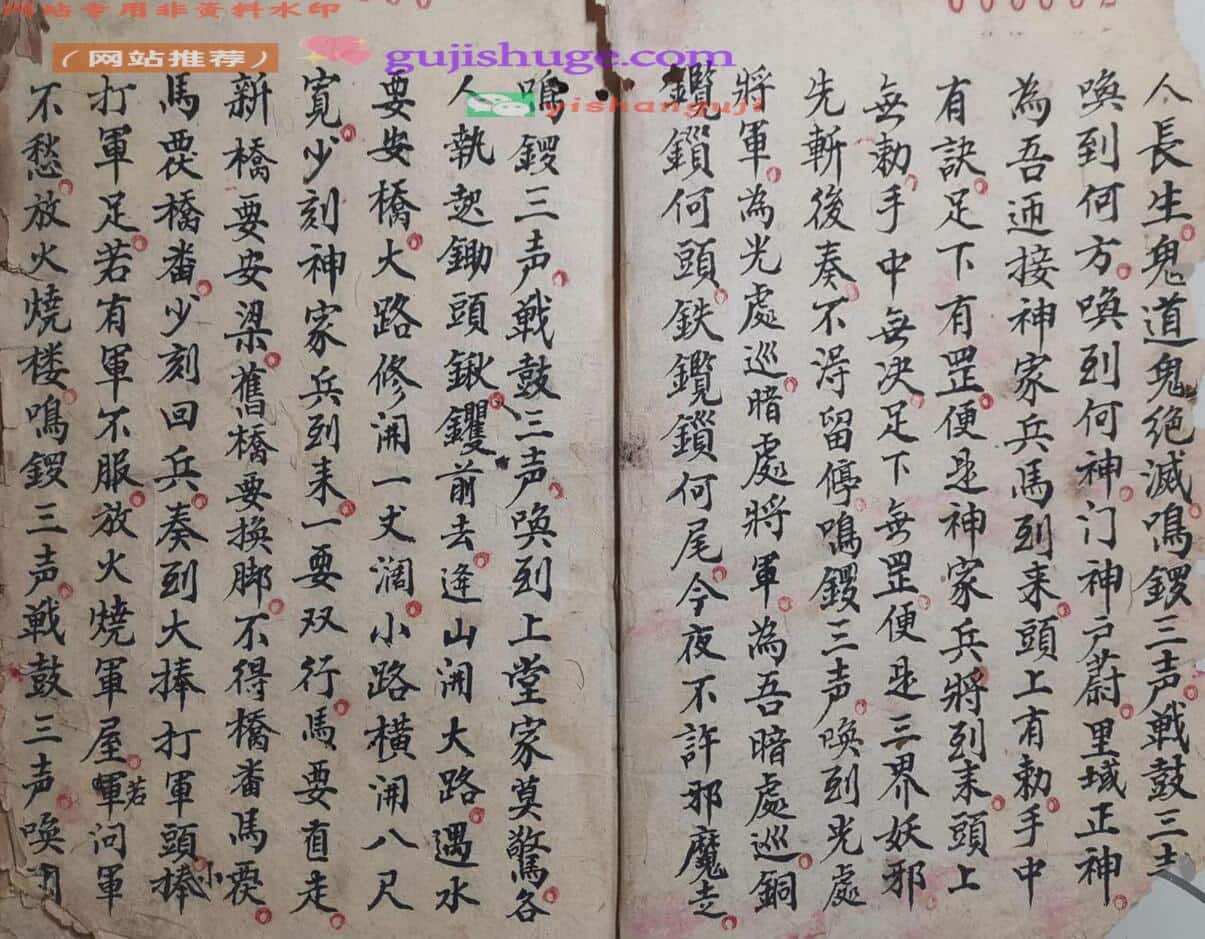 网站专用非资料水印
（网站推荐）
gujishuge.com
yishanguji
人長生鬼道鬼绝滅鳴鑼三声戰鼓三声
喚到何方喚到何神门神户蔚里域正神
為吾迊接神家兵馬到来頭上有勅手中
有訣足下有罡便是神家兵將到来頭上
無勅手中無决足下無罡便是三界妖邪
先斬後奏不淂留停鳴鑼三声喚到光處
將軍為光處巡暗處將軍為吾暗處巡銅
鑬鎖何頭鉄鑬鎖何尾今夜不許邪魔走
鳴鑼三声戰鼓三声喚到上堂家莫驚各
人執起鋤頭鍬钁前去逢山開大路遇水
要安橋大路修開一丈濶小路横開八尺
寬少刻神家兵到来一要双行馬要直走
新橋要安梁舊橋要换脚不得橋畨馬
馬橋畨少刻回兵奏到大捧打軍頭小捧
打軍足若有軍不服放火燒軍屋若軍问軍
不愁放火燒楼鳴鑼三声戰鼓三声喚